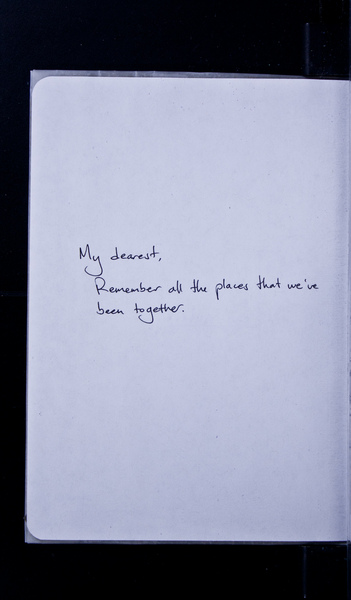 My dearest,
Remember all the places that we've
been together.